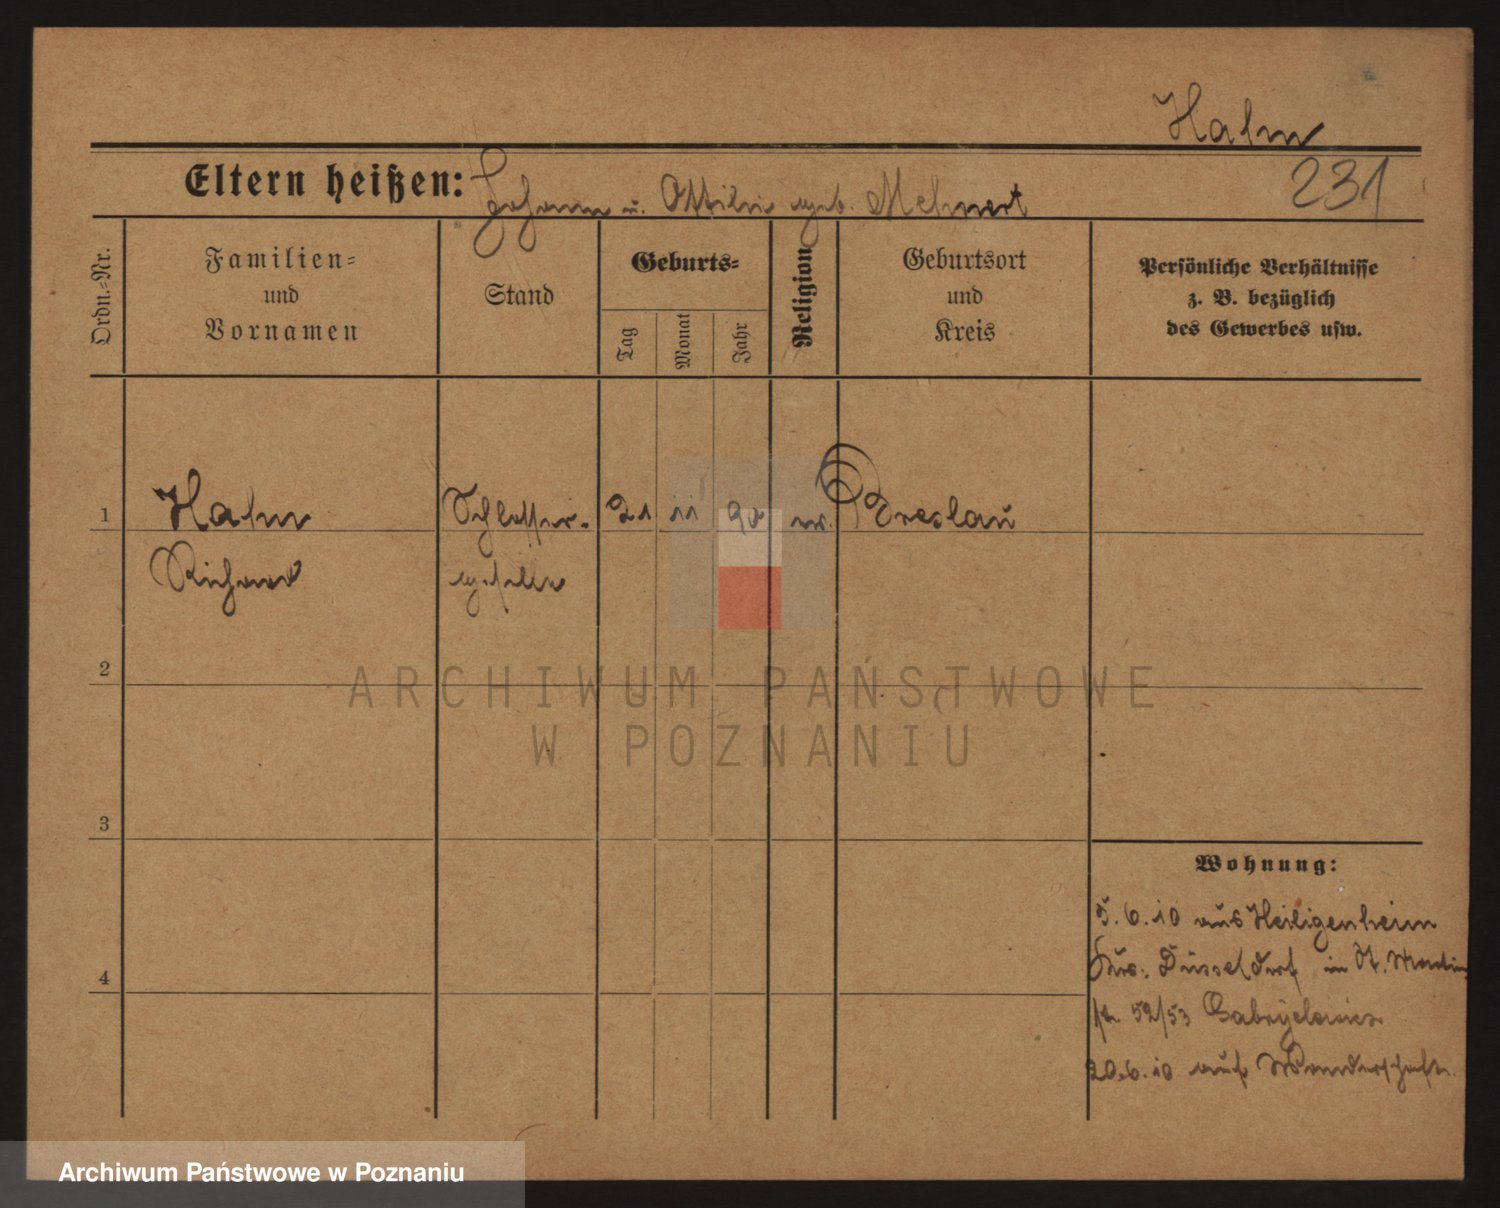 Hahn
Eltern heißen: Johann u. Ottilie geb. Mehnert
231
Ordn.-Nr.
Familien-
und
Vornamen
Stand
Geburts-
Tag
Monat
Jahr
Religion
Geburtsort
und
Kreis
Persönliche Verhältnisse
z. B. bezüglich
des Gewerbes usw.
1 Hahn Schlosser- 21 11 90 ev. Breslau
Richard geselle
2
ARCHIWUM PAŃSTWOWE
W POZNANIU
3
Wohnung:
5.6.10 aus Heiligenheim
Düsseldorf in St. Martin
4
str 52/53 Gabryelewicz
20.6.10 auf Wanderschaft.
Archiwum Państwowe w Poznaniu